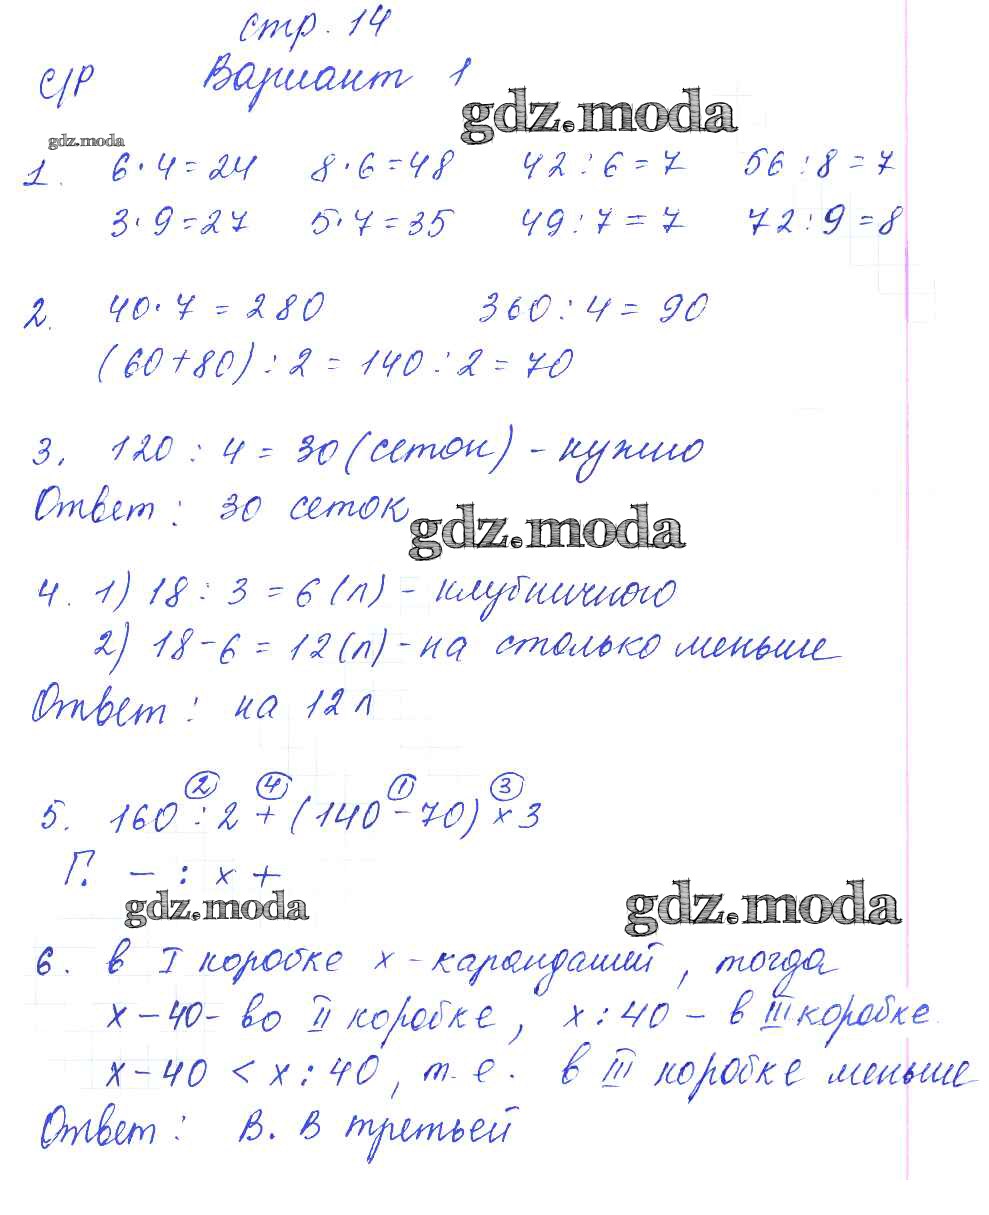 стр. 14
С/Р Вариант 1
gdz.moda
gdz.moda
1. 6·4=24 8·6=48 42:6=7 56:8=7
3·9=27 5·7=35 49:7=7 72:9=8
2. 40·7=280 360:4=90
(60+80):2=140:2=70
3. 120:4=30(сеток)-нужно
Ответ: 30 сеток
gdz.moda
4. 1) 18:3=6(л)-клубничного
2) 18-6=12(л)-на столько меньше
Ответ: на 12 л
2 4 1 3
5. 160:2+(140-70)×3
Г. - : × +
gdz.moda
gdz.moda
6. в I коробке x-карандашей, тогда
x-40-во II коробке, x:40-в III коробке.
x-40<x:40, т.е. в III коробке меньше
Ответ: В. В третьей